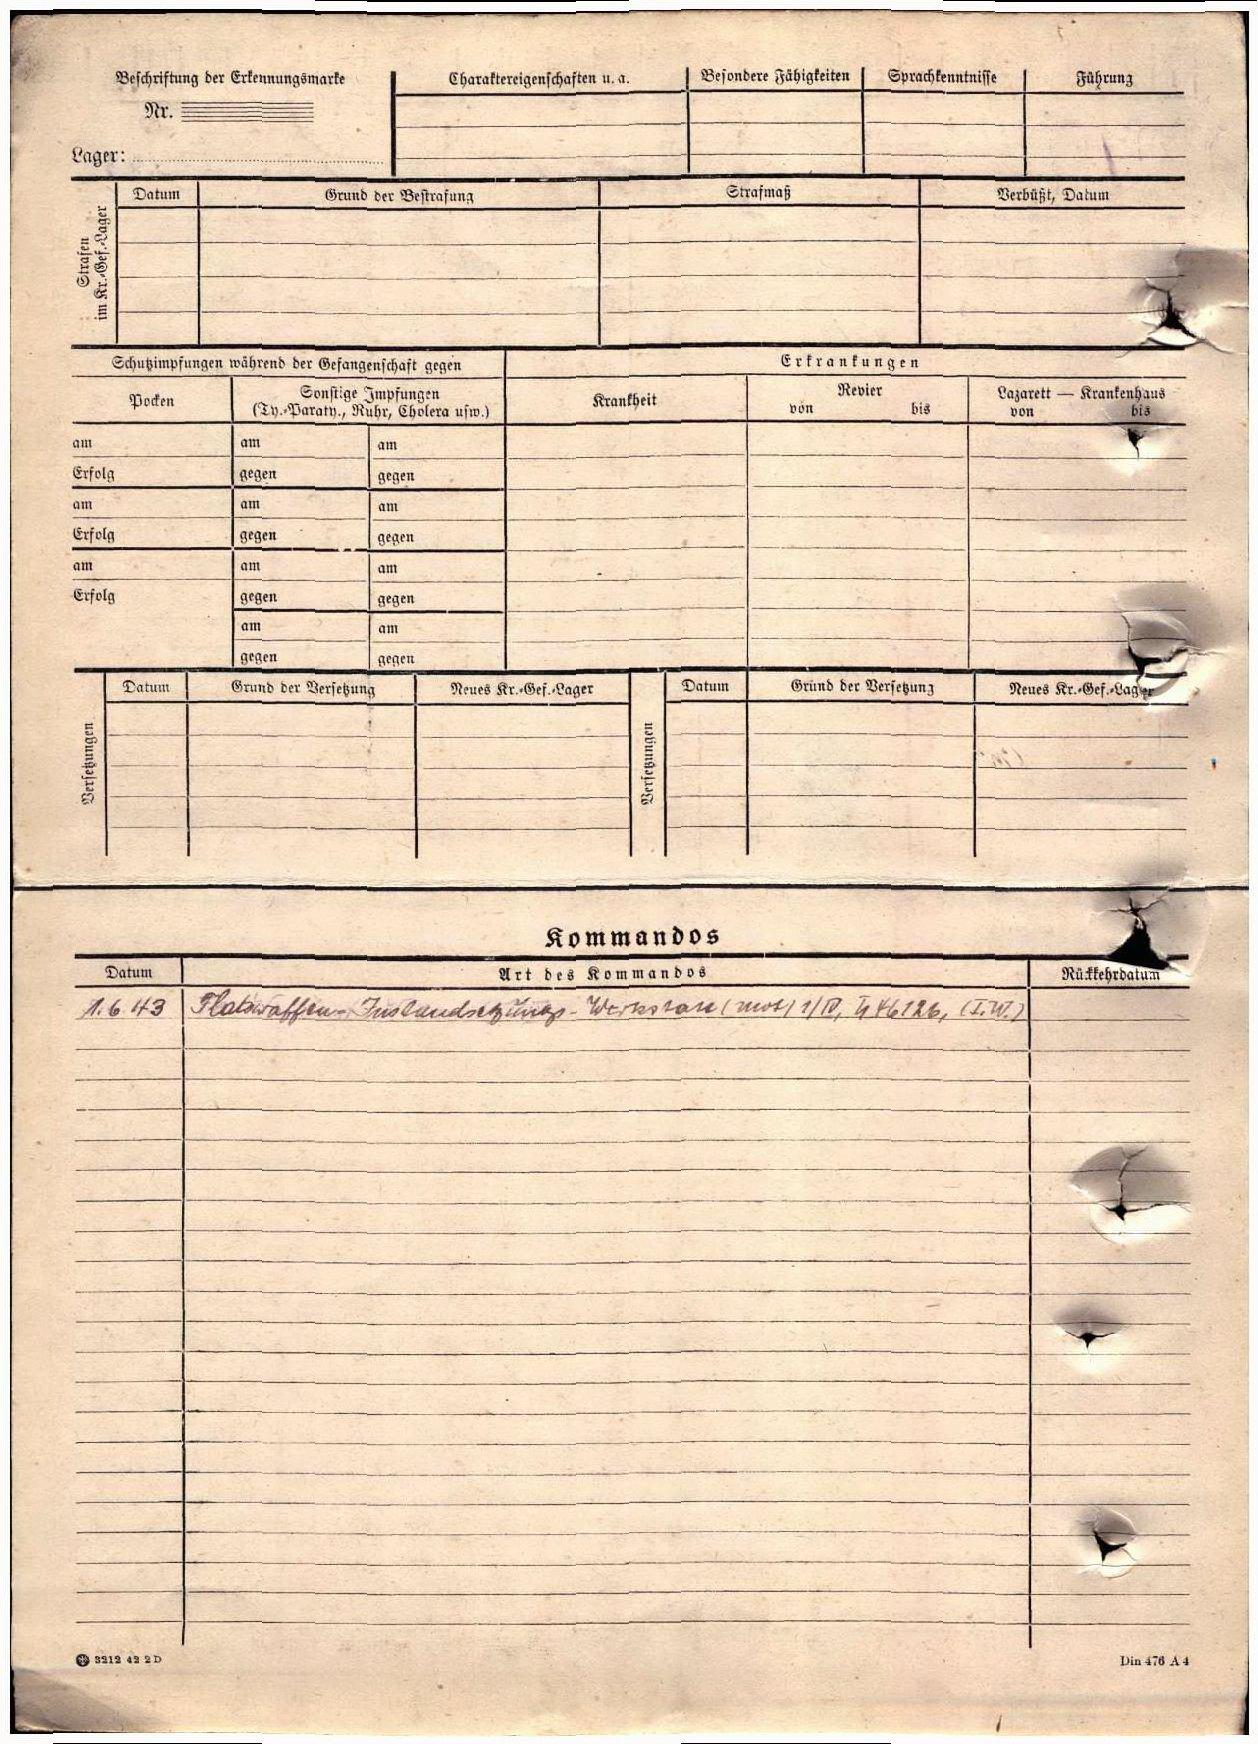 Beschriftung der Erkennungsmarke
Nr.
Lager:
Charaktereigenschaften u. a.
Besondere Fähigkeiten
Sprachkenntnisse
Führung
Strafen
im Kr.-Gef.-Lager
Datum
Grund der Bestrafung
Strafmaß
Verbüßt, Datum
Schutzimpfungen während der Gefangenschaft gegen
Erkrankungen
Pocken
Sonstige Impfungen
(Ty.-Paraty., Ruhr, Cholera usw.)
Krankheit
Revier
von bis
Lazarett — Krankenhaus
von bis
am am am
Erfolg gegen gegen
am am am
Erfolg gegen gegen
am am am
Erfolg gegen gegen
am am
gegen gegen
Versetzungen
Datum Grund der Versetzung Neues Kr.-Gef.-Lager
Versetzungen
Datum Grund der Versetzung Neues Kr.-Gef.-Lager
Kommandos
Datum Art des Kommandos Rückkehrdatum
1.6.43 Flakwaffen-Instandsetzungs-Werkstatt (mot) 1/IV, L 46126, (I.W.)
3212 42 2D
Din 476 A 4